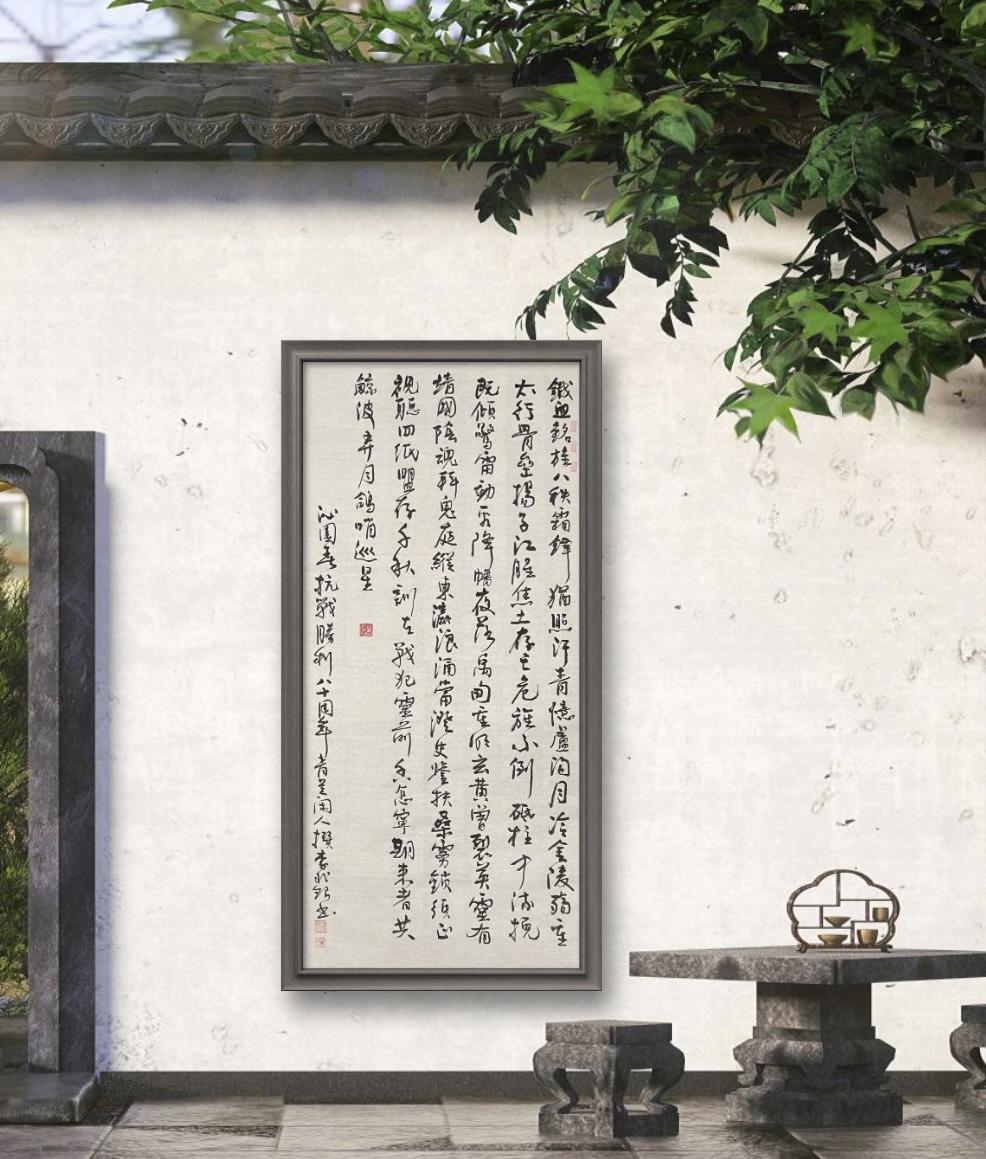 鐵血銘旌八秩霜鋒猶照汗青憶蘆溝月冷金陵殤重
太行骨壘揚子江腥焦土存亡危不倒砥柱中流挽
既傾驚雷動降幡夜落禹甸重明玄黃曾裂英靈有
靖國陰魂鬼庭縱東瀛浪涌當澄史鑒扶桑霧鎖須正
視聽四紙盟存千秋訓在戰犯靈前香怎寧期來者共
鯨波弃月鴿哨巡星
沁園春抗戰勝利八十周年青閑人撰李書